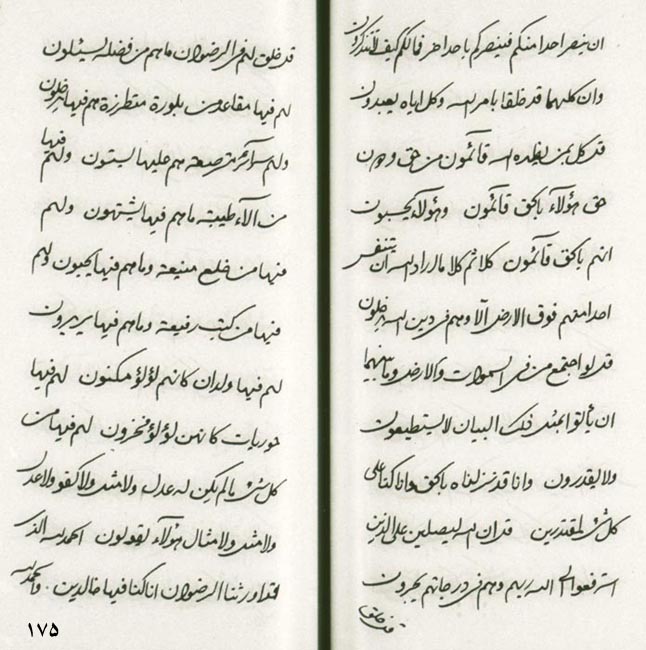 ان ينصر احدا منكم فينصركم باحد اهر فمالكم كيف لاتتذكرون
وان كليهما قد خلقا بامر الله وكل اياه يعبدون
قل كل بمن يظهره الله قائمون من حق و دون
حق هؤلآء بالحق قائمون وهؤلآء يحسبون
انهم بالحق قائمون كلا ثم كلا ما اراد الله ان يتنفس
احد منهم فوق الارض الا وهم فى دين الله يدخلون
قل لو اجتمع من فى السموات والارض وما بينهما
ان ياتوا بمثل ذلك البيان لايستطيعون
ولا يقدرون وانا قد نزلناه بالحق وانا كنا على
كل شئ لمقتدرين قل ان الله ليصلين على الذين
استرفعوا الى الله ربهم وهم فى درجاتهم يحبرون
قد خلق
قد خلق لهم فى الرضوان ماهم من فضله يسئلون
لهم فيها مقاعد من بلورة متطرزة هم فيها يدخلون
ولهم سرائر مترصعة هم عليها يستون ولهم فيها
من آلآء طيبة ماهم فيها يشتهون ولهم
فيها من خلع منيعة وماهم فيها يحبون ولهم
فيها من كتب رفيعة وماهم فيها يريدون
لهم فيها ولدان كانهم لؤلؤ مكنون لهم فيها
حوريات كانهن لؤلؤ مخزون لهم فيها من
كل شئ مالم يكن له عدل ولا مثل ولا كفو ولا عدل
ولا مثل ولا مثال هؤلآء ليقولون الحمد لله الذى
قد اورثنا الرضوان انا كنا فيها خالدين . والحمد لله
۱۷۵